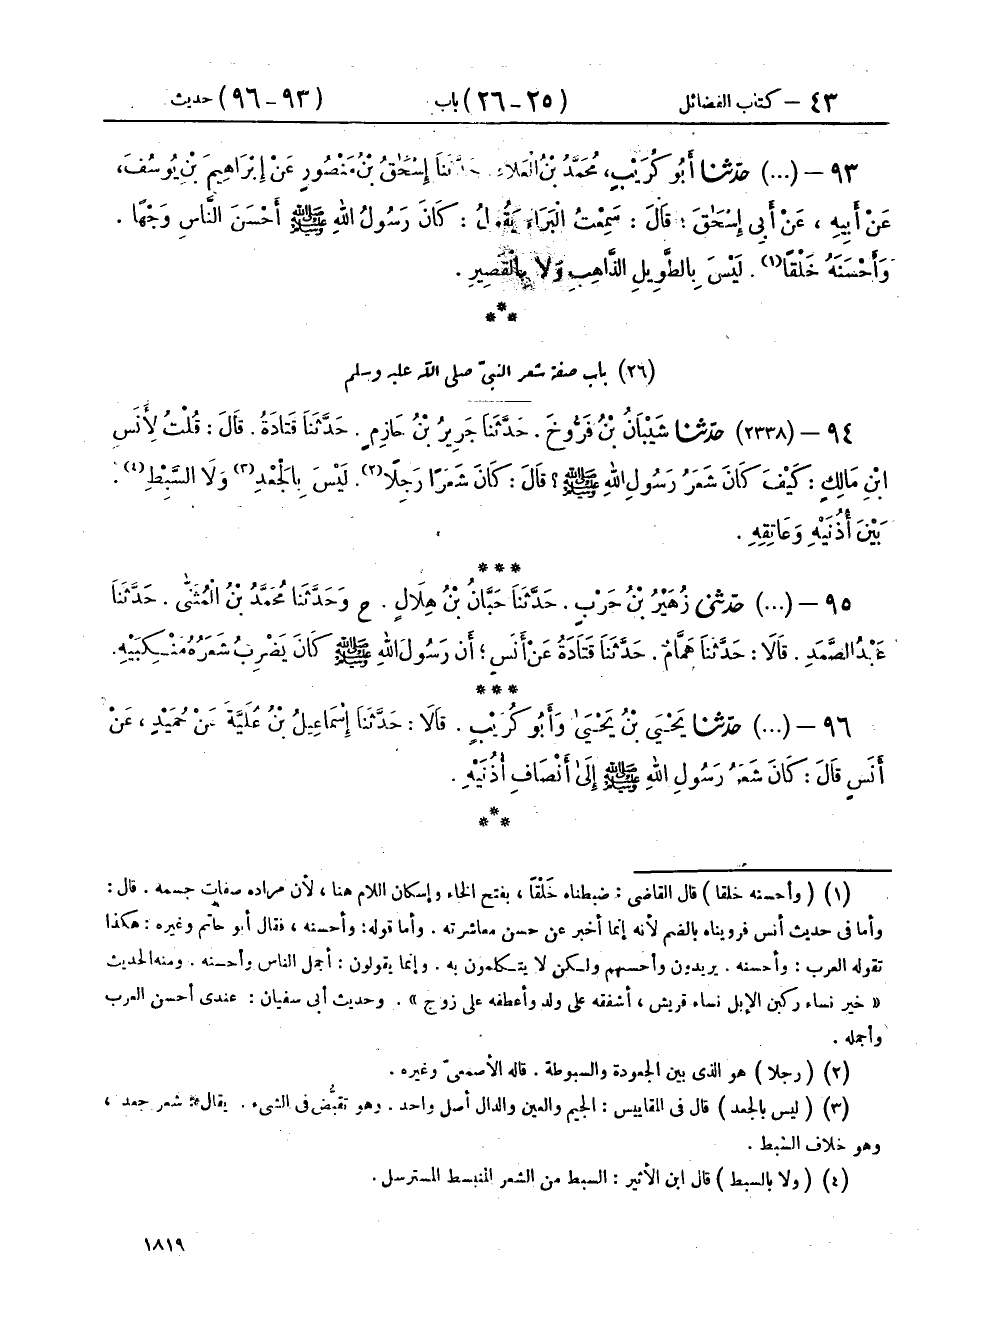 ٤٣ – كتاب الفضائل (٢٥ – ٢٦) باب (٩٣ – ٩٦) حديث
٩٣ – (...) حَدَّثَنَا أَبُو كُرَيْبٍ، مُحَمَّدُ بْنُ الْعَلَاءِ. حَدَّثَنَا إِسْحَٰقُ بْنُ مَنْصُورٍ عَنْ إِبْرَاهِيمَ بْنِ يُوسُفَ،
عَنْ أَبِيهِ ، عَنْ أَبِي إِسْحَٰقَ ؛ قَالَ : سَمِعْتُ الْبَرَاءَ يَقُولُ : كَانَ رَسُولُ اللهِ ﷺ أَحْسَنَ النَّاسِ وَجْهًا .
وَأَحْسَنَهُ خَلْقًا(١) . لَيْسَ بِالطَّوِيلِ الذَّاهِبِ وَلَا بِالْقَصِيرِ .
***
(٢٦) باب صفة شعر النبيّ صلى الله عليه وسلم
٩٤ – (٢٣٣٨) حَدَّثَنَا شَيْبَانُ بْنُ فَرُّوخَ . حَدَّثَنَا جَرِيرُ بْنُ حَازِمٍ . حَدَّثَنَا قَتَادَةُ . قَالَ : قُلْتُ لِأَنَسِ
ابْنِ مَالِكٍ : كَيْفَ كَانَ شَعَرُ رَسُولِ اللهِ ﷺ ؟ قَالَ : كَانَ شَعَرًا رَجِلًا(٢). لَيْسَ بِالْجَعْدِ(٣) وَلَا السَّبْطِ(٤) .
بَيْنَ أُذُنَيْهِ وَعَاتِقِهِ .
***
٩٥ – (...) حَدَّثَنِي زُهَيْرُ بْنُ حَرْبٍ . حَدَّثَنَا حَبَّانُ بْنُ هِلَالٍ . ح وَحَدَّثَنَا مُحَمَّدُ بْنُ الْمُثَنَّى . حَدَّثَنَا
عَبْدُ الصَّمَدِ . قَالَا : حَدَّثَنَا هَمَّامٌ . حَدَّثَنَا قَتَادَةُ عَنْ أَنَسٍ ؛ أَنَّ رَسُولَ اللهِ ﷺ كَانَ يَضْرِبُ شَعَرُهُ مَنْكِبَيْهِ.
***
٩٦ – (...) حَدَّثَنَا يَحْيَى بْنُ يَحْيَىٰ وَأَبُو كُرَيْبٍ . قَالَا : حَدَّثَنَا إِسْمَاعِيلُ بْنُ عُلَيَّةَ عَنْ حُمَيْدٍ ، عَنْ
أَنَسٍ قَالَ : كَانَ شَعَرُ رَسُولِ اللهِ ﷺ إِلَىٰ أَنْصَافِ أُذُنَيْهِ .
***
(١) ( وأحسنه خلقا ) قال القاضى : ضبطناه خَلْقًا ، بفتح الخاء وإسكان اللام هنا ، لأن مراده صفات جسمه . قال :
وأما فى حديث أنس فرويناه بالضم لأنه إنما أخبر عن حسن معاشرته . وأما قوله : وأحسنه ، فقال أبو حاتم وغيره : هكذا
تقوله العرب : وأحسنه . يريدون وأحسنهم ولكن لا يتكلمون به . وإنما يقولون : أجمل الناس وأحسنه . ومنه الحديث
« خير نساء ركبن الإبل نساء قريش ، أشفقه على ولد وأعطفه على زوج » . وحديث أبى سفيان : عندى أحسن العرب
وأجمله .
(٢) ( رجلا ) هو الذى بين الجعودة والسبوطة . قاله الأصمعىّ وغيره .
(٣) ( ليس بالجعد ) قال فى المقاييس : الجيم والعين والدال أصل واحد . وهو تقبُّض فى الشىء . يقال : شعر جعد ،
وهو خلاف السبط .
(٤) ( ولا بالسبط ) قال ابن الأثير : السبط من الشعر المنبسط المسترسل .
١٨١٩